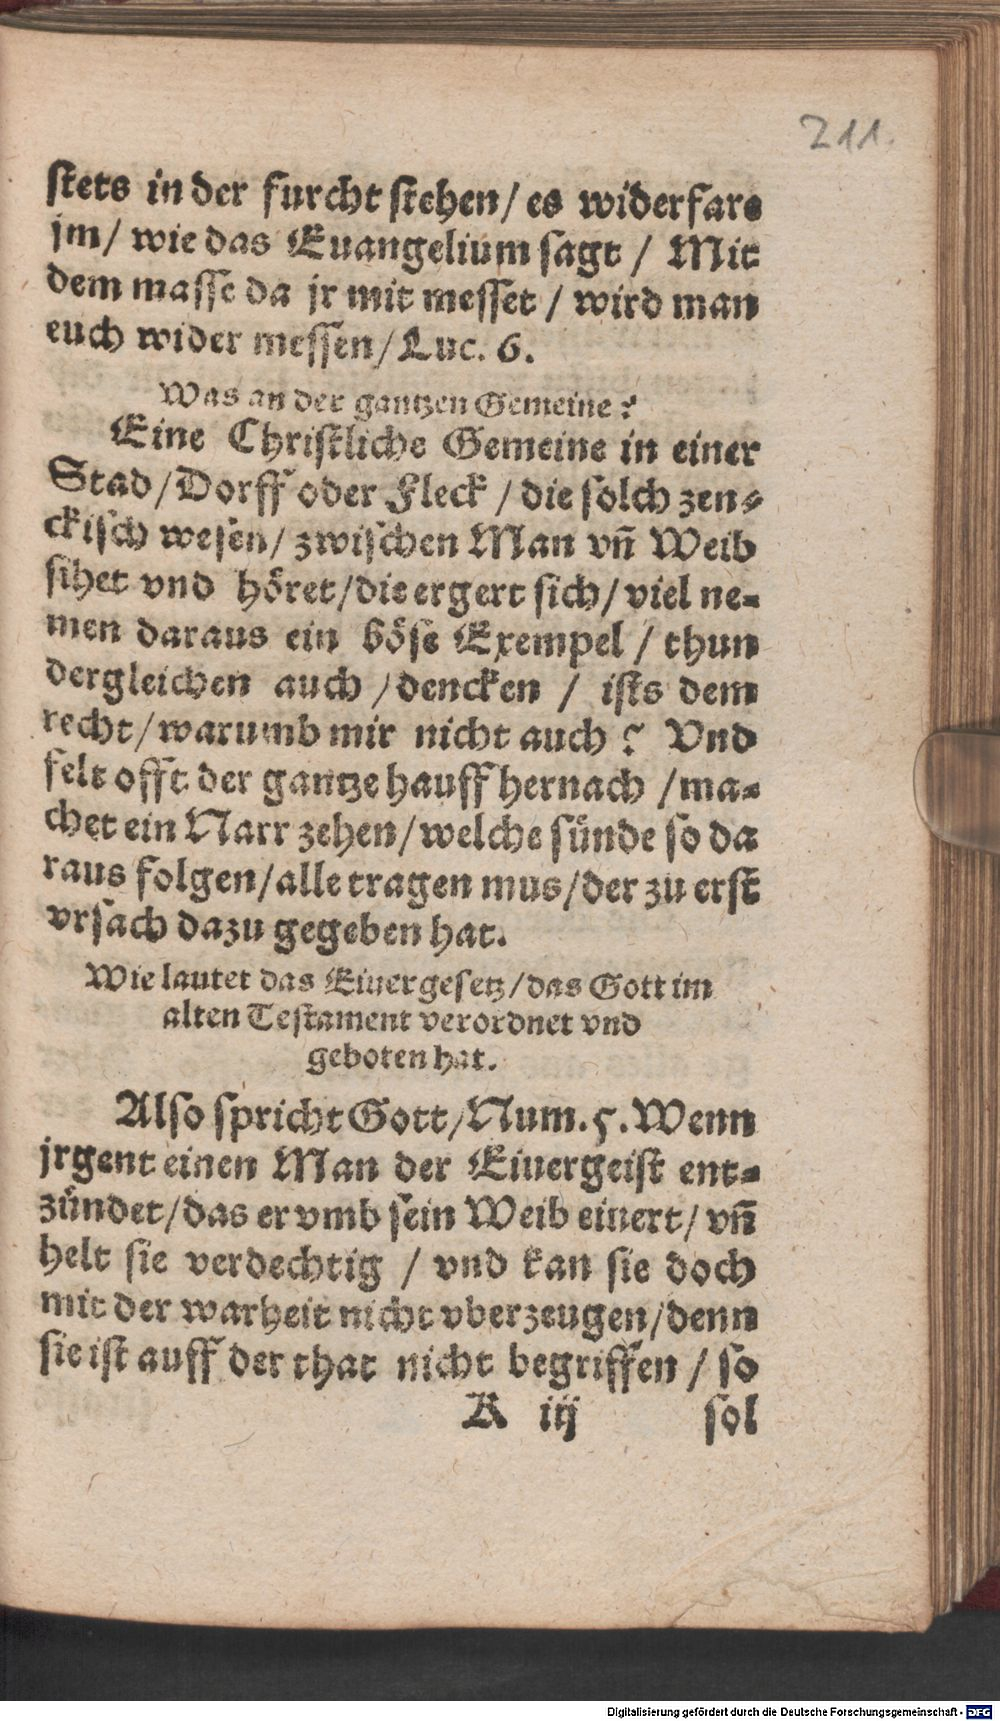 211.
stets in der furcht stehen / es widerfare
jm / wie das Euangelium sagt / Mit
dem masse da jr mit messet / wird man
euch wider messen / Luc. 6.
Was an der gantzen Gemeine?
Eine Christliche Gemeine in einer
Stad / Dorff oder Fleck / die solch zen-
ckisch wesen / zwischen Man vñ Weib
sihet vnd höret / die ergert sich / viel ne-
men daraus ein böse Exempel / thun
dergleichen auch / dencken / ists dem
recht / warumb mir nicht auch? Vnd
felt offt der gantze hauff hernach / ma-
chet ein Narr zehen / welche sünde so da
raus folgen / alle tragen mus / der zu erst
vrsach dazu gegeben hat.
Wie lautet das Eiuergesetz / das Gott im
alten Testament verordnet vnd
geboten hat.
Also spricht Gott / Num. 5. Wenn
jrgent einen Man der Eiuergeist ent-
zündet / das er vmb sein Weib eiuert / vñ
helt sie verdechtig / vnd kan sie doch
mit der warheit nicht vberzeugen / denn
sie ist auff der that nicht begriffen / so
K iij sol
Digitalisierung gefördert durch die Deutsche Forschungsgemeinschaft - DFG